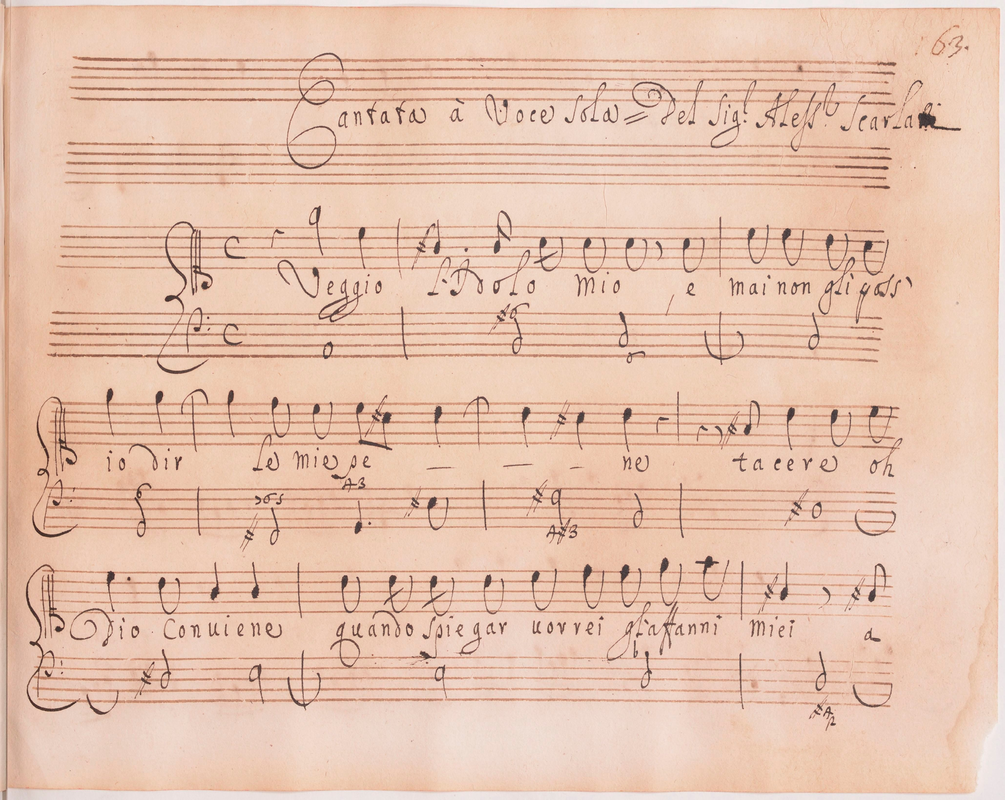 63.
Cantata à Voce sola = Del Sig.r Aless.o Scarlatti
Veggio L'Idolo mio, e mai non gli poss'
io dir le mie pe — — — ne tacere oh
Dio Conuiene quando spiegar uorrei gl'affanni miei a